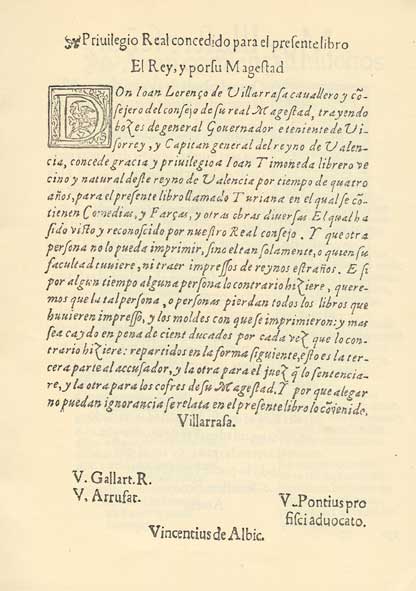 Priuilegio Real concedido para el presente libro
El Rey, y por su Magestad
DOn Ioan Lorenço de Villarrasa cauallero y cõ-
sejero del consejo de su real Magestad, trayendo
bozes de general Gouernador e teniente de Vi-
sorrey, y Capitan general del reyno de Valen-
cia, concede gracia y priuilegio a Ioan Timoneda librero ve
cino y natural deste reyno de Valencia por tiempo de quatro
años, para el presente libro llamado Turiana en el qual se cõ-
tienen Comedias, y Farças, y otras obras diuersas El qual ha
sido visto y reconoscido por nuestro Real consejo. Y que otra
persona no lo pueda imprimir, sino el tan solamente, o quien su
facultad tuuiere, ni traer impressos de reynos estraños. E si
por algun tiempo alguna persona lo contrario hiziere, quere-
mos que la tal persona, o personas pierdan todos los libros que
huuieren impresso, y los moldes con que se imprimieron: y mas
sea caydo en pena de cient ducados por cada vez que lo con-
trario hiziere: repartidos en la forma siguiente, esto es la ter-
cera parte al accusador, y la otra para el juez q̃ lo sentencia-
re, y la otra para los cofres de su Magestad. Y por que alegar
no puedan ignorancia se relata en el presente libro lo cõtenido.
Villarrasa.
V. Gallart. R.
V, Arrufat.
V_ Pontius pro
fisci aduocato.
Vincentius de Albic.